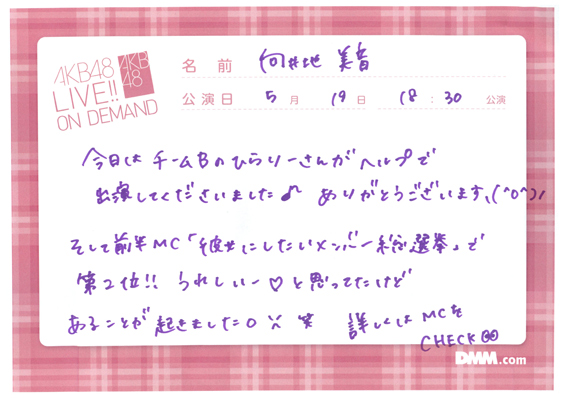 AKB48
LIVE!!
ON DEMAND
AKB
48
名前 向井地 美音
公演日 5月 19日 18:30 公演
今日は チームBのひらりーさんが ヘルプで
出演してくださいました♪ ありがとうございます、(^o^)ﾉ
そして前半MC「彼女にしたいメンバー総選挙」で
第2位!! うれしいー♡と思ってたけど
あることが 起きました○ 笑 詳しくは MCを
CHECK
DMM.com